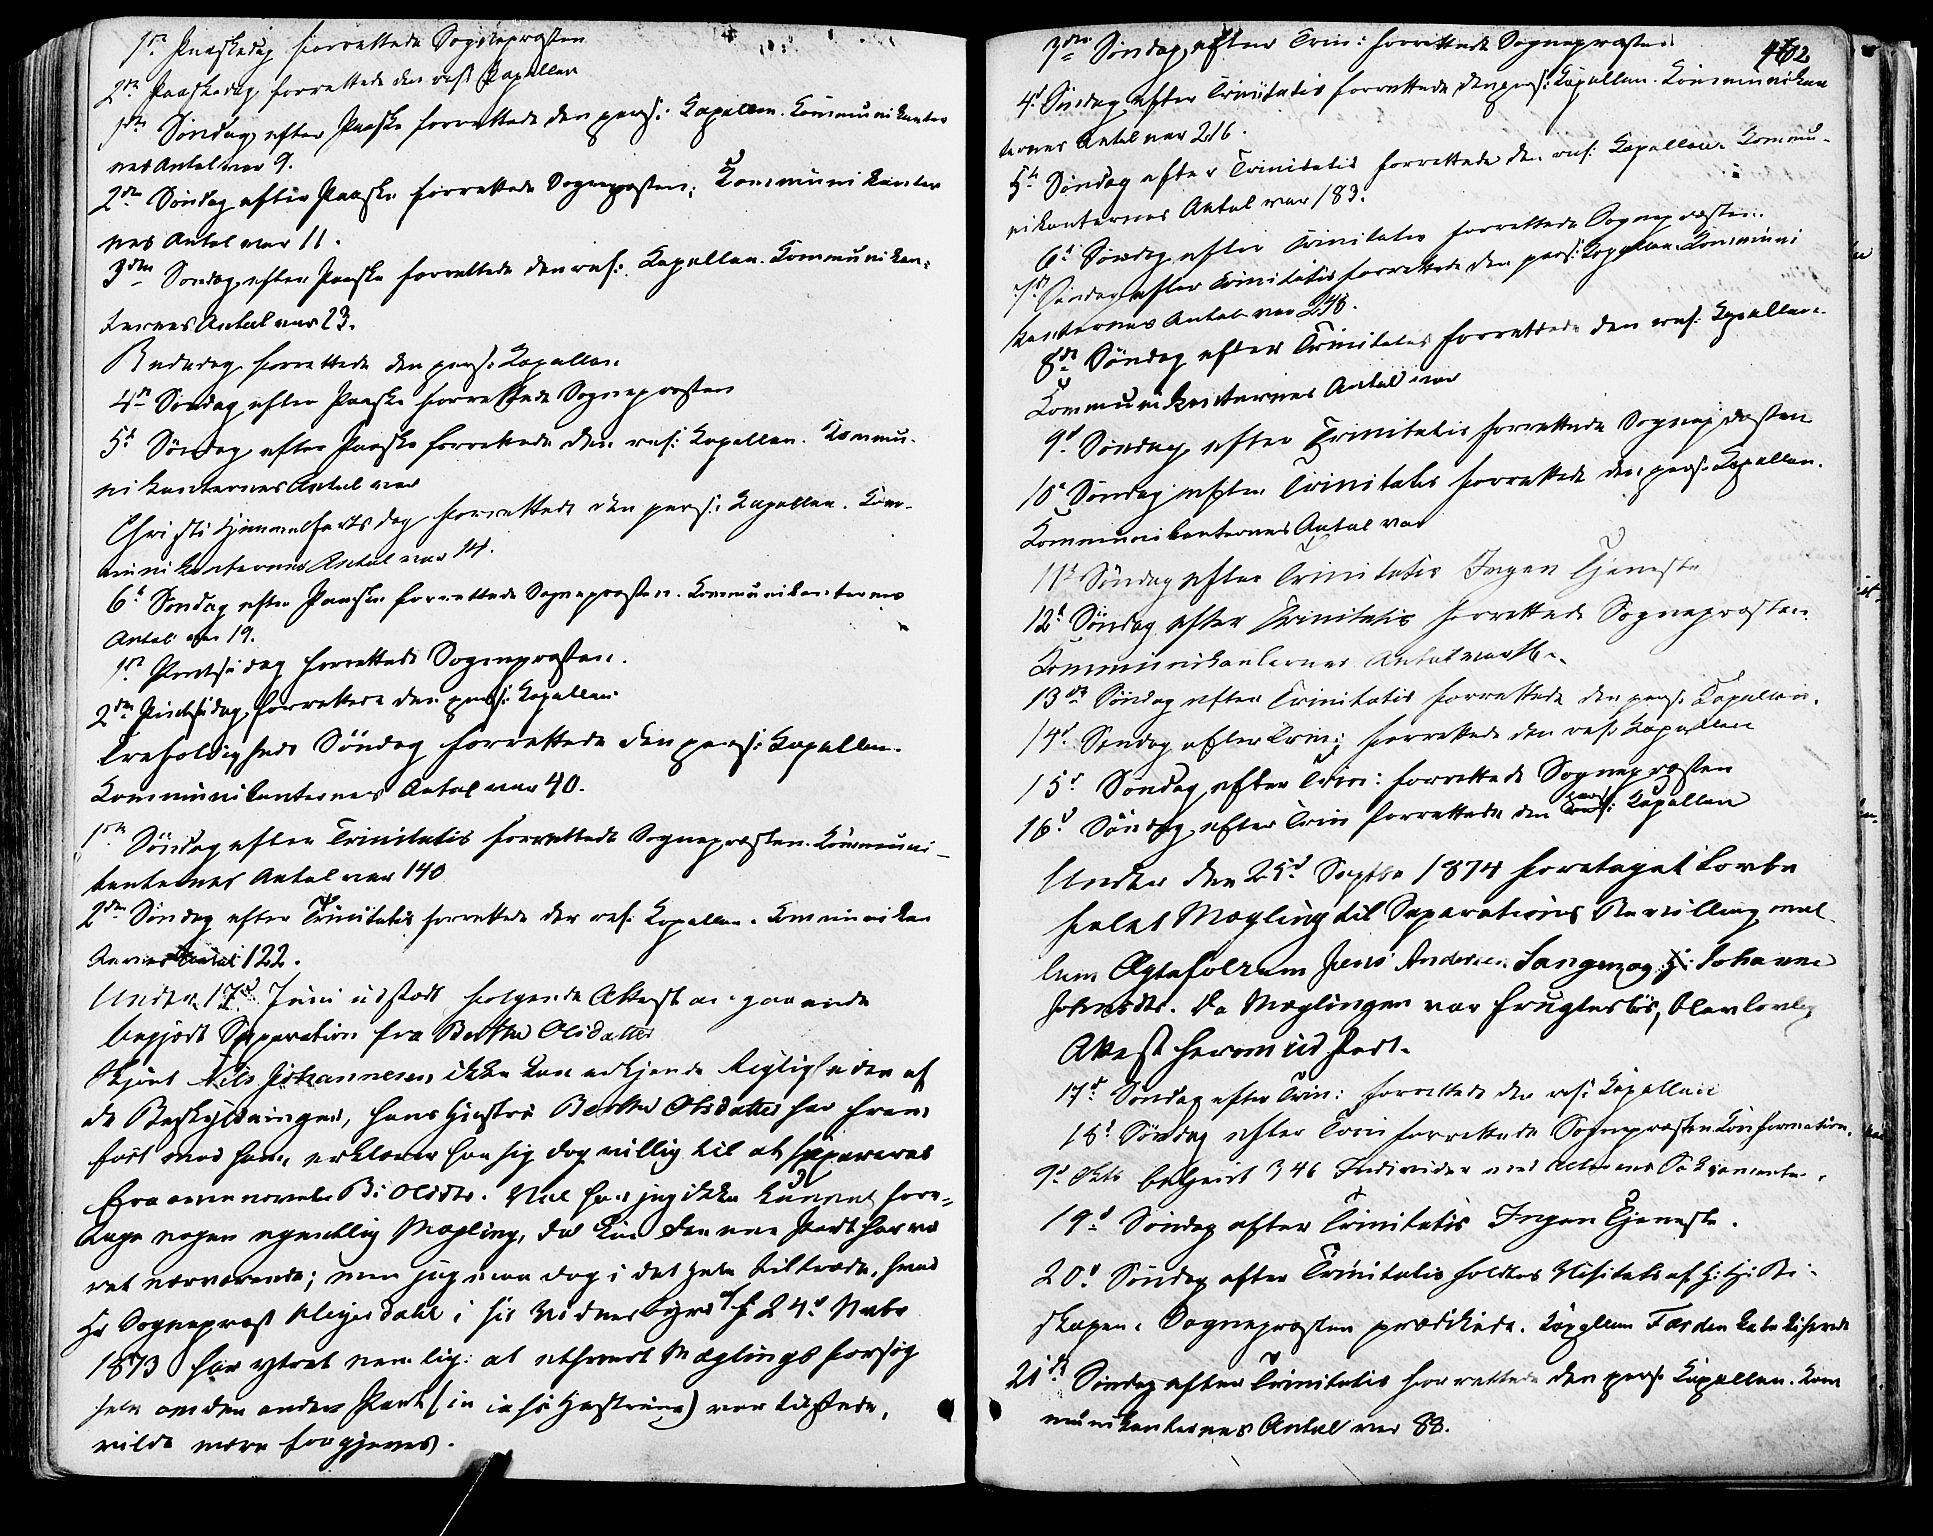 1ste Paaskedag forrettede Sognepræsten
2den Paaskedag forrettede den res: Kapellan
1ste Søndag efter Paaske forrettede den pers: Kapellan. Kommunikanter
nes Antal var 9.
2den Søndag efter Paaske forrettede Sognepræsten. Kommunikanter
nes Antal var 11.
3die Søndag efter Paaske forrettede den res: Kapellan. Kommunikan-
ternes Antal var 23.
Bededag forrettede den pers: Kapellan
4de Søndag efter Paaske forrettede Sognepræsten
5te Søndag efter Paaske forrettede den res: Kapellan. Kommu-
nikanternes Antal var
Christi Himmelfartsdag forrettede den pers: Kapellan. Kom-
munikanternes Antal var 14.
6te Søndag efter Paaske forrettede Sognepræsten. Kommunikanternes
Antal var 19.
1ste Pintsedag forrettede Sognepræsten.
2den Pintsedag forrettede den pers: Kapellan
Trefoldigheds Søndag forrettede den pers: Kapellan.
Kommunikanternes Antal var 40.
1ste Søndag efter Trinitatis forrettede Sognepræsten. Kommuni-
kanternes Antal var 140
2den Søndag efter Trinitatis forrettede den res: Kapellan. Kommunikan
ternes Antal 122.
Under 17de Juni udstedt følgende Attest angaaende
begjært Separation fra Berthe Olsdatter
Skjønt Nils Johannesen ikke kan erkjende Rigtigheden af
de Beskyldninger, hans Hustru Berthe Olsdatter har frem
ført mod ham, erklærer han sig dog villig til at separeres
fra ovennævnte B: Olsdtr. Vel har jeg ikke kunnet fore-
tage nogen egentlig Mægling, da kun den ene Part har væ
ret nærværende; men jeg maa dog i det Hele tiltræde, hvad
Hr Sognepræst Kleigsdahl i sit Vidnesbyrd af 24de Novbr
1873 har ytret nemlig: at ethvert Mæglingsforsøg
selv om den anden Part (in casu Hustruen) var tilstede,
vilde være forgjeves.
3die Søndag efter Trin: forrettede Sognepræsten
462
4de Søndag efter Trinitatis forrettede den pers: Kapellan. Kommunikan
ternes Antal var 216.
5te Søndag efter Trinitatis forrettede den res: Kapellan. Kommu-
nikanternes Antal var 183.
6te Søndag efter Trinitatis forrettede Sognepræsten.
7de Søndag efter Trinitatis forrettede den pers: Kapellan. Kommuni
kanternes Antal var 248.
8de Søndag efter Trinitatis forrettede den res: Kapellan.
Kommunikanternes Antal var
9de Søndag efter Trinitatis forrettede Sognepræsten
10de Søndag efter Trinitatis forrettede den pers: Kapellan.
Kommunikanternes Antal var
11te Søndag efter Trinitatis Ingen Tjeneste
12te Søndag efter Trinitatis forrettede Sognepræsten
Kommunikanternes Antal var
13de Søndag efter Trinitatis forrettede den pers: Kapellan.
14de Søndag efter Trin: forrettede den res: Kapellan
15de Søndag efter Trin: forrettede Sognepræsten
16de Søndag efter Trin forrettede den pers: Kapellan
Under den 25de Septbr 1874 foretaget lovbe
falet Mægling til Separations Bevilling mel
lem Ægtefolkene Jens Andersen Langen og Johanne
Johnsdtr. Da Mæglingen var frugtesløs, blev lovlig
Attest herom udstedt.
17de Søndag efter Trin: forrettede den res: Kapellan
18de Søndag efter Trin forrettede Sognepræsten Konfirmation.
9de Oktb betjent 346 Individer med Alterens Sakramente.
19de Søndag efter Trinitatis Ingen Tjeneste.
20de Søndag efter Trinitatis holdtes Visitats af H: H: Bi-
skopen. Sognepræsten prædikede. Kapellan Færden katekiserede
21de Søndag efter Trinitatis forrettede den pers: Kapellan. Kom
munikanternes Antal var 88.